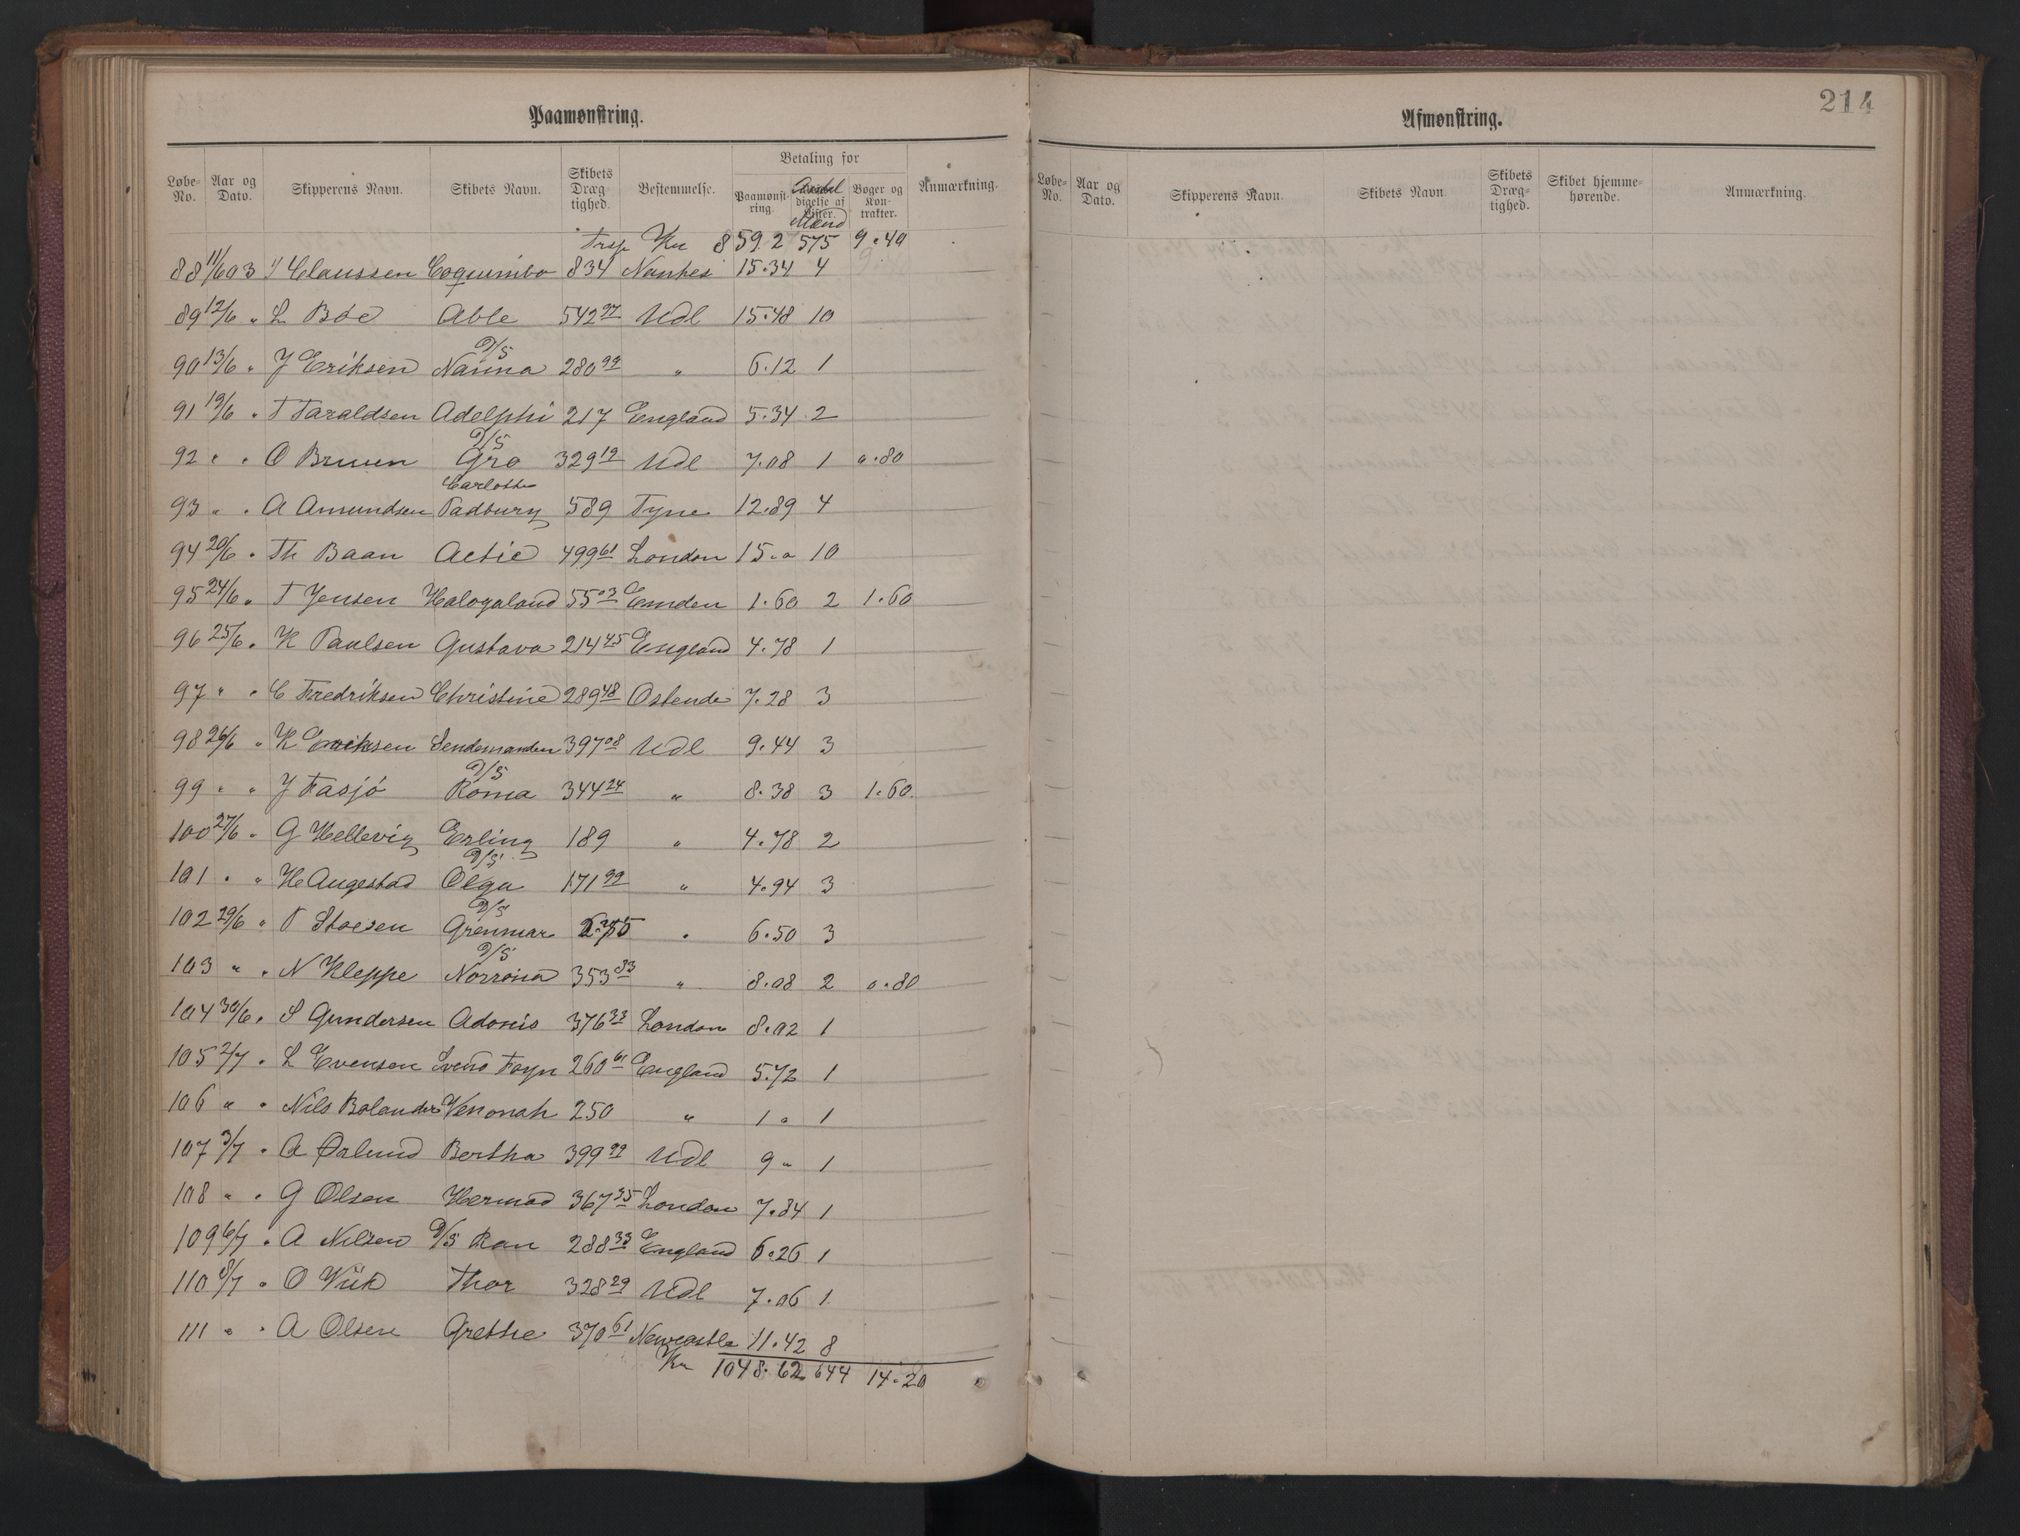 Paamønstring.
Løbe-No. Aar og Dato. Skipperens Navn. Skibets Navn. Skibets Dræg-tighed. Bestemmelse. Betaling for Paamønst-ring. Antal digelse af Lister. Mænd Bøger og Kon-trakter. Anmærkning.
Trsp Kr 859.27 575 9.40
88 11/6 03 J Claussen Coquimbo 834 Nantes 15.34 4
89 12/6 " L Böe Able 542 97 Udl 15.48 10
90 13/6 " J Eriksen D/S Nanna 280 99 " 6.12 1
91 19/6 " T Taraldsen Adelphi 217 England 5.34 2
92 " " O Bruun D/S Gro 329 19 Udl 7.08 1 0.80
93 " " A Amundsen Carlotte Padbury 589 Tyne 12.89 4
94 20/6 " Th Baan Actie 499 61 London 15." 10
95 24/6 " T Jensen Halogaland 55 03 Emden 1.60 2 1.60
96 25/6 " K Paulsen Gustava 214 45 England 4.78 1
97 " " C Fredriksen Christine 289 48 Ostende 7.28 3
98 26/6 " K Eriksen Sendemanden 397 08 Udl 9.44 3
99 " " J Fasjö D/S Roma 344 24 " 8.38 3 1.60
100 27/6 " G Hellevig Erling 189 " 4.78 2
101 " " H Augestad D/S Olga 171 99 " 4.94 3
102 29/6 " P Stoesen D/S Grenmar 275 " 6.50 3
103 " " N Kleppe D/S Norröna 353 83 " 8.08 2 0.80
104 30/6 " S Gundersen Adonis 376 33 London 8.02 1
105 2/7 " L Evensen Svend Foyn 260 61 England 5.72 1
106 " " Nils Bolander Venonah 250 " 1 " 1
107 3/7 " A Ørlund Bertha 399 99 Udl 9 " 1
108 " " G Olsen Hermod 367 35 London 7.84 1
109 6/7 " A Nilsen D/S Ran 288 33 England 6.26 1
110 8/7 " O Wiik Thor 328 29 Udl 7.06 1
111 " " A Olsen Grethe 370 61 Newcastle 11.42 8
Kr 1048.62 644 14.20
214
Afmønstring.
Løbe-No. Aar og Dato. Skipperens Navn. Skibets Navn. Skibets Dræg-tighed. Skibet hjemme-hørende. Anmærkning.